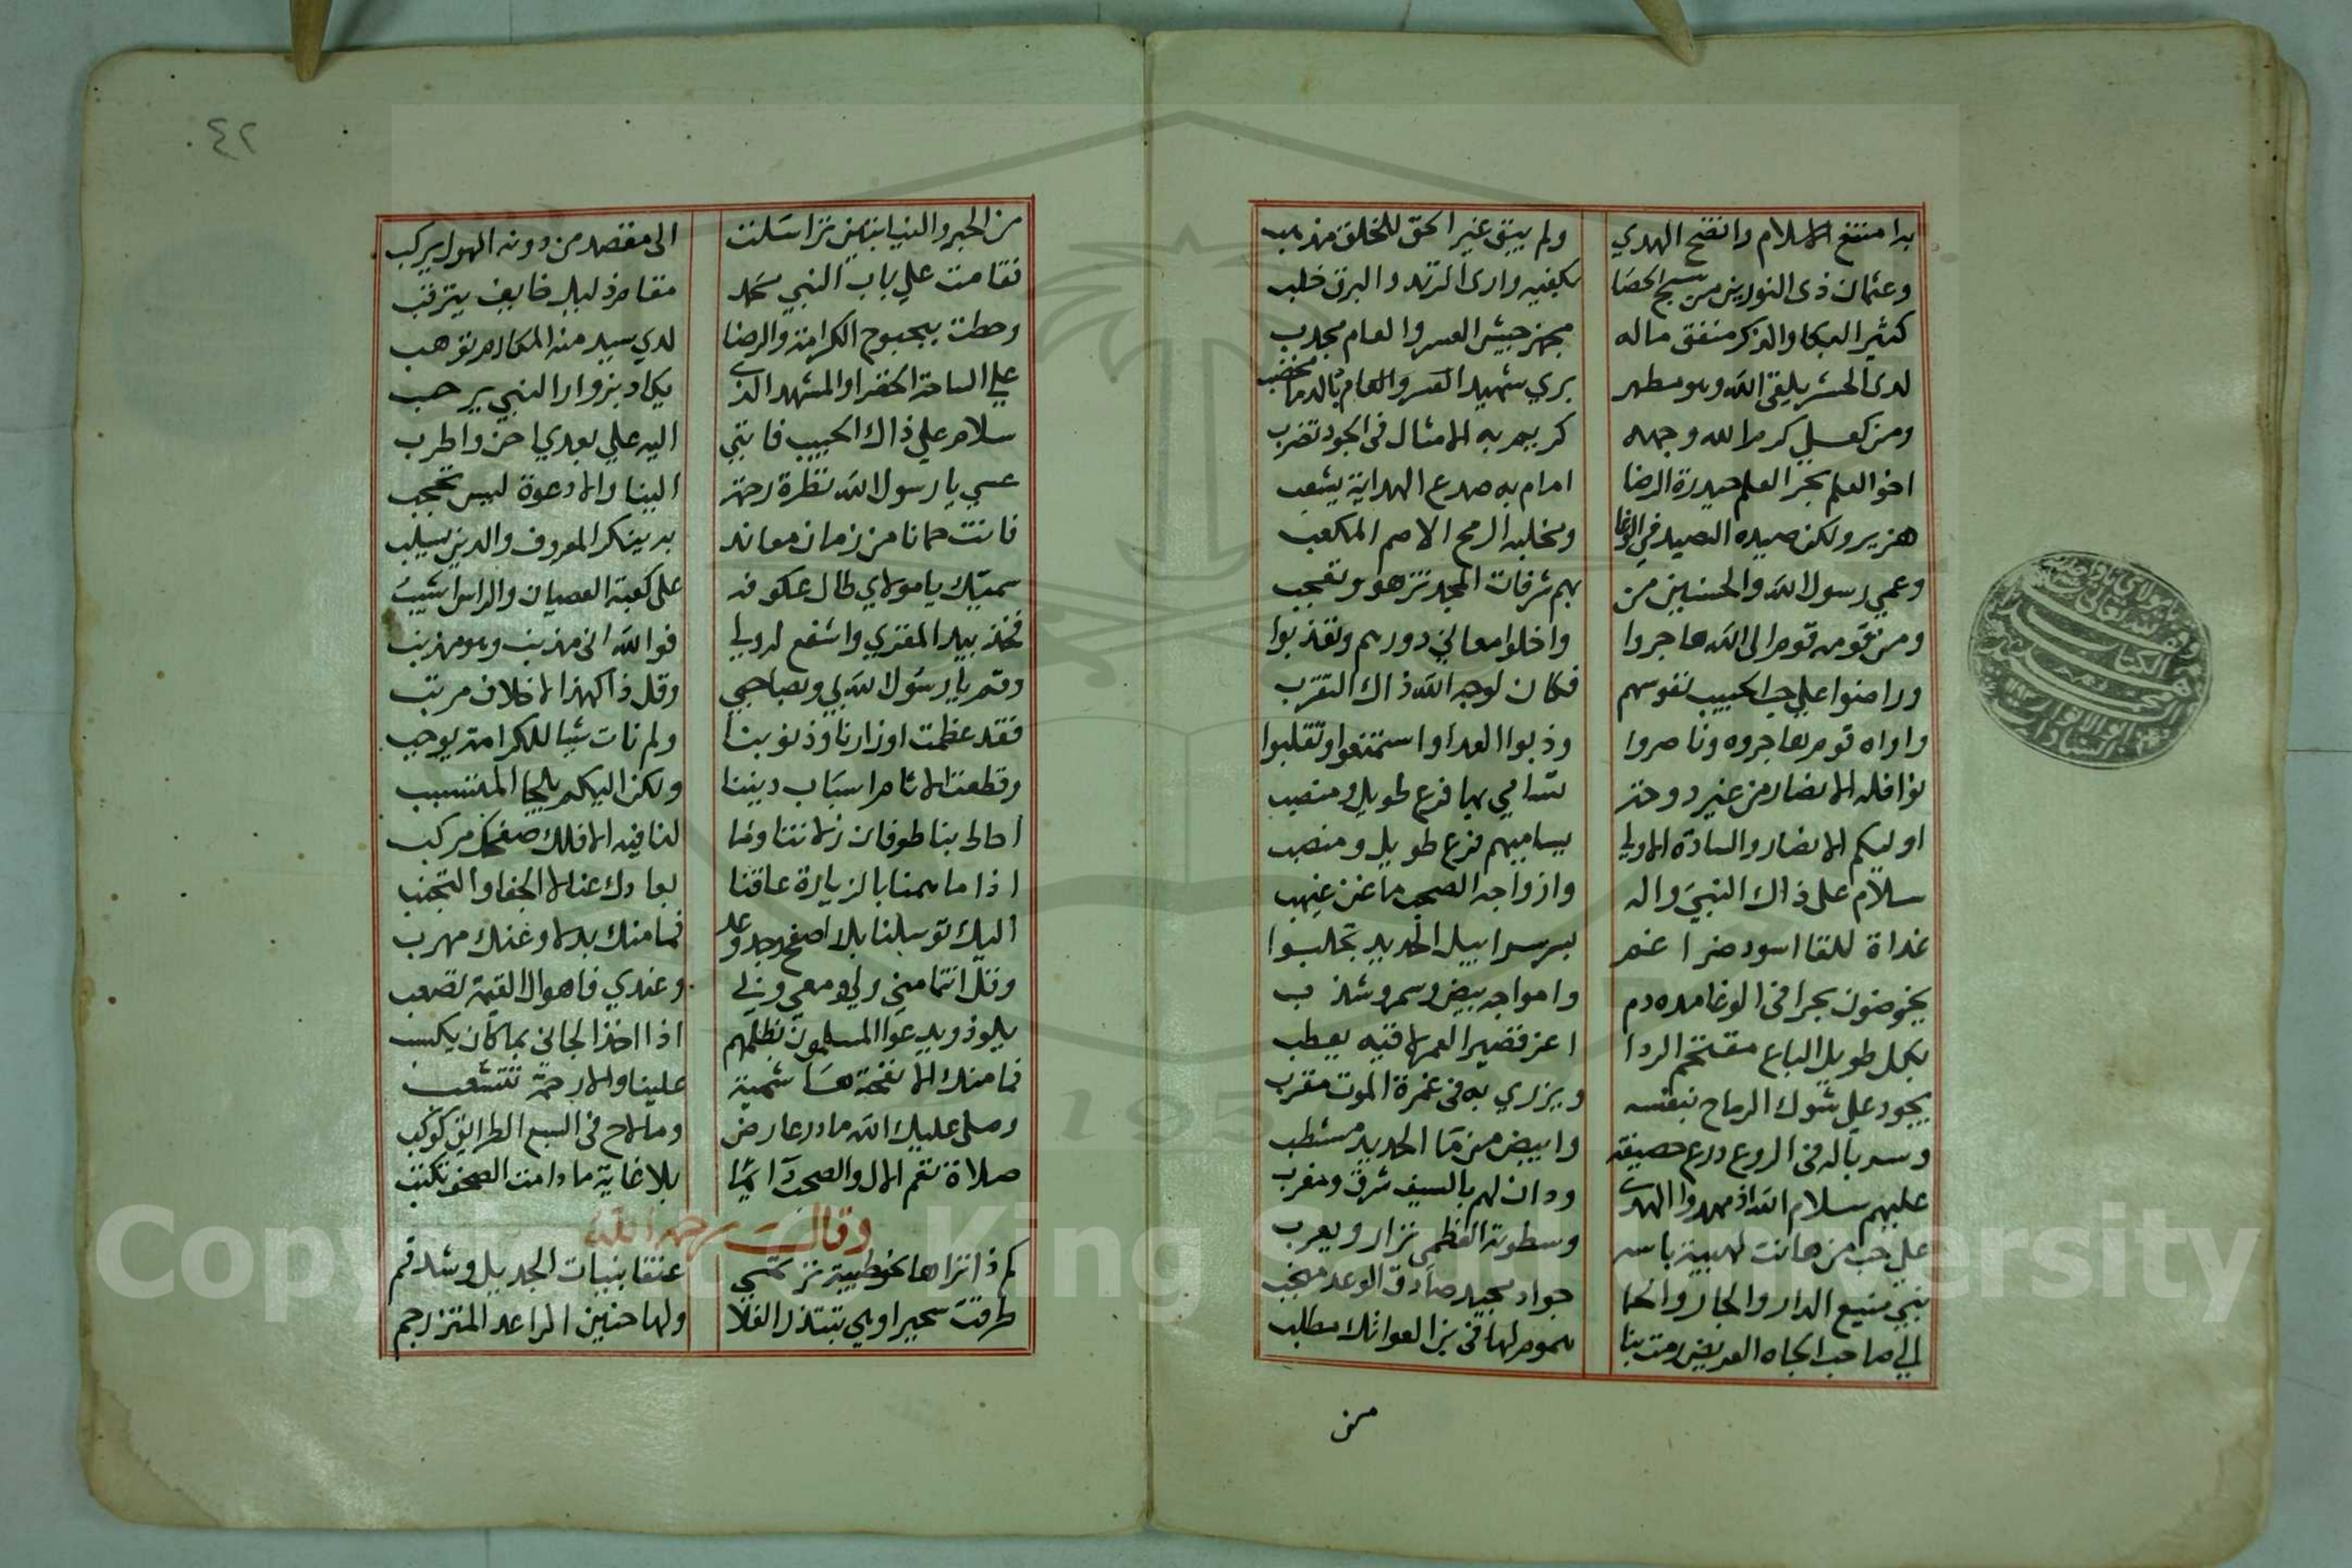 بدا منتفع الاسلام واتضح الهدي ولم يبق غير الحق للخلق مذهب
وعثمان ذى النورين من سبح الحصا بكفيه وارى الزند والبرق خلب
كثير البكا والذكر منفق ماله مجهز جيش العسر والعام مجدب
لدى الحشر يلقى الله وهو مطهر بري شهيد بالدما مخضب
ومن كعلي كرم الله وجهه كريم به الامثال فى الجود تضرب
اخو العلم بحر العلم حيدرة الرضا امام به صدع الهداية يشعب
هزبر ولكن صيده الصيد في الوغا ومخلبه الرمح الاصم المكعب
وعمي رسول الله والحسنين من بهم شرفات المجد تزهو وتعجب
ومن قومه قوم الى الله هاجروا واخلوا مغاني دورهم وتغربوا
وراضوا على حب الحبيب نفوسهم فكان لوجه الله ذاك التقرب
واواه قوم هاجروه وناصروا وذبوا العدا واستمتعوا وتقلبوا
من غير دوحة تسامي بها فرع طويل ومنصب
اوليكم الانصار والسادة الاولي يساميهم فرع طويل ومنصب
سلام على ذاك النبي واله وازواجه الصحب ما عن غيهب
غداة اللقا اسود ضراغم لهم سرابيل الحديد تجلبوا
يخوضون بحرا فى الوغا مده دم وامواجه بيض وسمر وشذب
بكل طويل الباع مقتحم الردا اعز قصير العمر لاقيه يعطب
يجود علي شوك الرماح بنفسه ويزري به فى غمرة الموت مقرب
وسرباله فى الروع درع حصينة وابيض من ما الحديد مشطب
عليهم سلام الله اذ مهدوا الهدى ودان لهم بالسيف شرق ومغرب
علي حب من هانت لهيبة باسه وسطوته العظمى نزار ويعرب
نبي منيع الدار والجار والحما جواد مجيد صادق الوعد منجب
الي صاحب الجاه العريض رمت بنا هموم لها فى العواتك مطلب
من
٤٢
من الخير والنيابتين تراسلت الى مقصد من دونه الهول يركب
فقامت علي باب النبي محمد مقام ذليل خايف يترقب
وحطت ببحبوح الكرامة والرضا لدي سيد منه المكارم توهب
علي الساحة الخضرا والمشهد الذى يكاد بزوار النبي يرحب
سلام علي ذاك الحبيب فانني اليه علي بعدي احن واطرب
عسي يا رسول الله نظرة رحمة الينا والا دعوة ليس تحجب
فانت حمانا من زمان معاند به ينكر المعروف والدين يسلب
سميك يا مولاي طال عكوفه على كعبة العصيان والراس اشيب
فخذ بيد المفتري واشفع له ولي فوالله انى مذنب وهو مذنب
وقم يا رسول الله بي وبصاحبي وقل ذا كهذا لاخلاف مرتب
فقد عظمت اوزارنا وذنوبنا ولم نات شيا للكرامة يوجب
وقطعت الاثام اسباب ديننا ولكن اليكم يلجا المتسبب
احالى بنا طوفان زلاتنا وما لنا فيه الا فلك صفحك مركب
اذا ما هممنا بالزيارة عاقنا بعادك عنا لا الجفا والتجنب
اليك توسلنا بك اصفح وجد وعد فما منك بد لا وعنك مهرب
وقل انتما مني ولي ومعي وبي وعندي فاهوال القيمة تصعب
يلوذ ويدعوا المسلمون بظلهم اذا اخذ الجاني بما كان يكسب
فما منك الا نفحة هاشمية علينا والا رحمة تتشعب
وصلى عليك الله ما در عارض وما لاح فى السبع الطرايق كوكب
صلاة تعم الال والصحب دايما بلا غاية ما دامت الصحف تكتب
وقال رحمه الله
كم ذا تراها تخوطبية ترتمي عنقا بنيات الجديل وشدقم
طرقت سحيرا وهي تبتدر الفلا ولها حنين الراعد المتزرجم